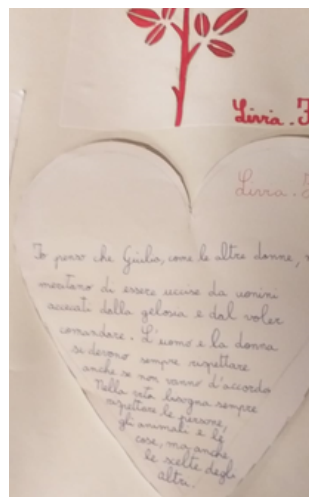 Livia. F
Livia. F
Io penso che Giulia, come le altre donne, n
meritano di essere uccise da uomini
accecati dalla gelosia e dal voler
comandare. L'uomo e la donna
si devono sempre rispettare
anche se non vanno d'accordo
Nella vita bisogna sempre
rispettare le persone,
gli animali e le
cose, ma anche
le scelte degli
altri.